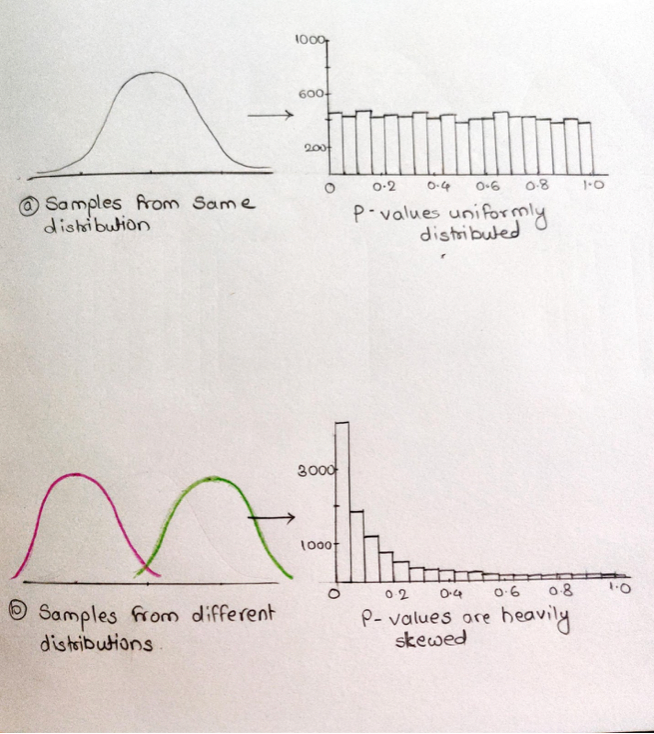 1000
600
200
0 0.2 0.4 0.6 0.8 1.0
ⓐ Samples from same
distribution
P-values uniformly
distributed
3000
1000
0 0.2 0.4 0.6 0.8 1.0
ⓑ Samples from different
distributions.
P-values are heavily
skewed